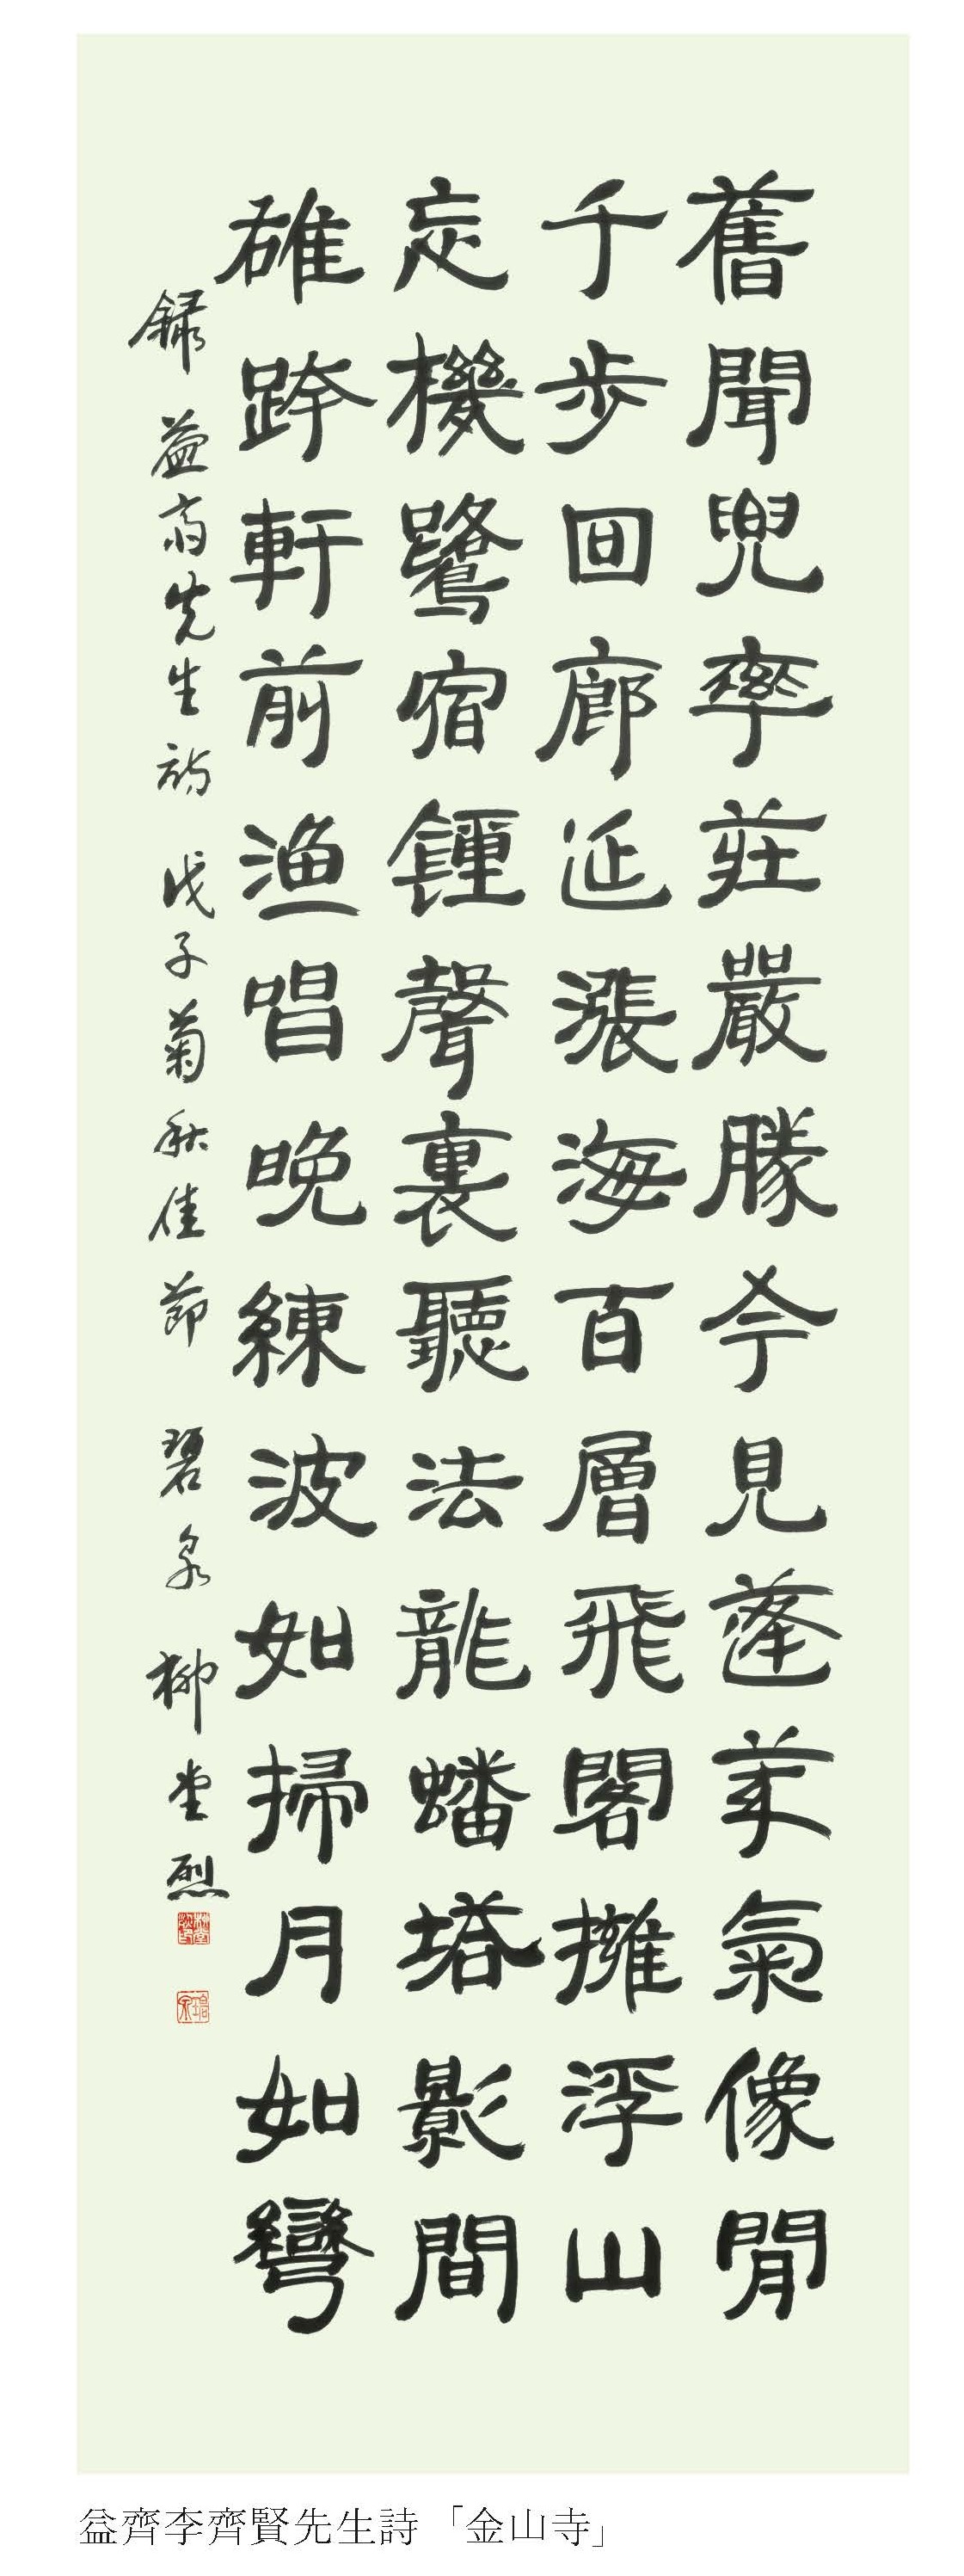 舊聞兜率莊嚴勝今見蓬萊氣像閒
千步回廊延漲海百層飛閣擁浮山
忘機鷺宿鍾聲裏聽法龍蟠塔影間
雄跨軒前漁唱晩練波如掃月如彎
錄 益齋先生詩 戊子菊秋佳節 碧泉 柳坣烈
益齊李齊賢先生詩「金山寺」